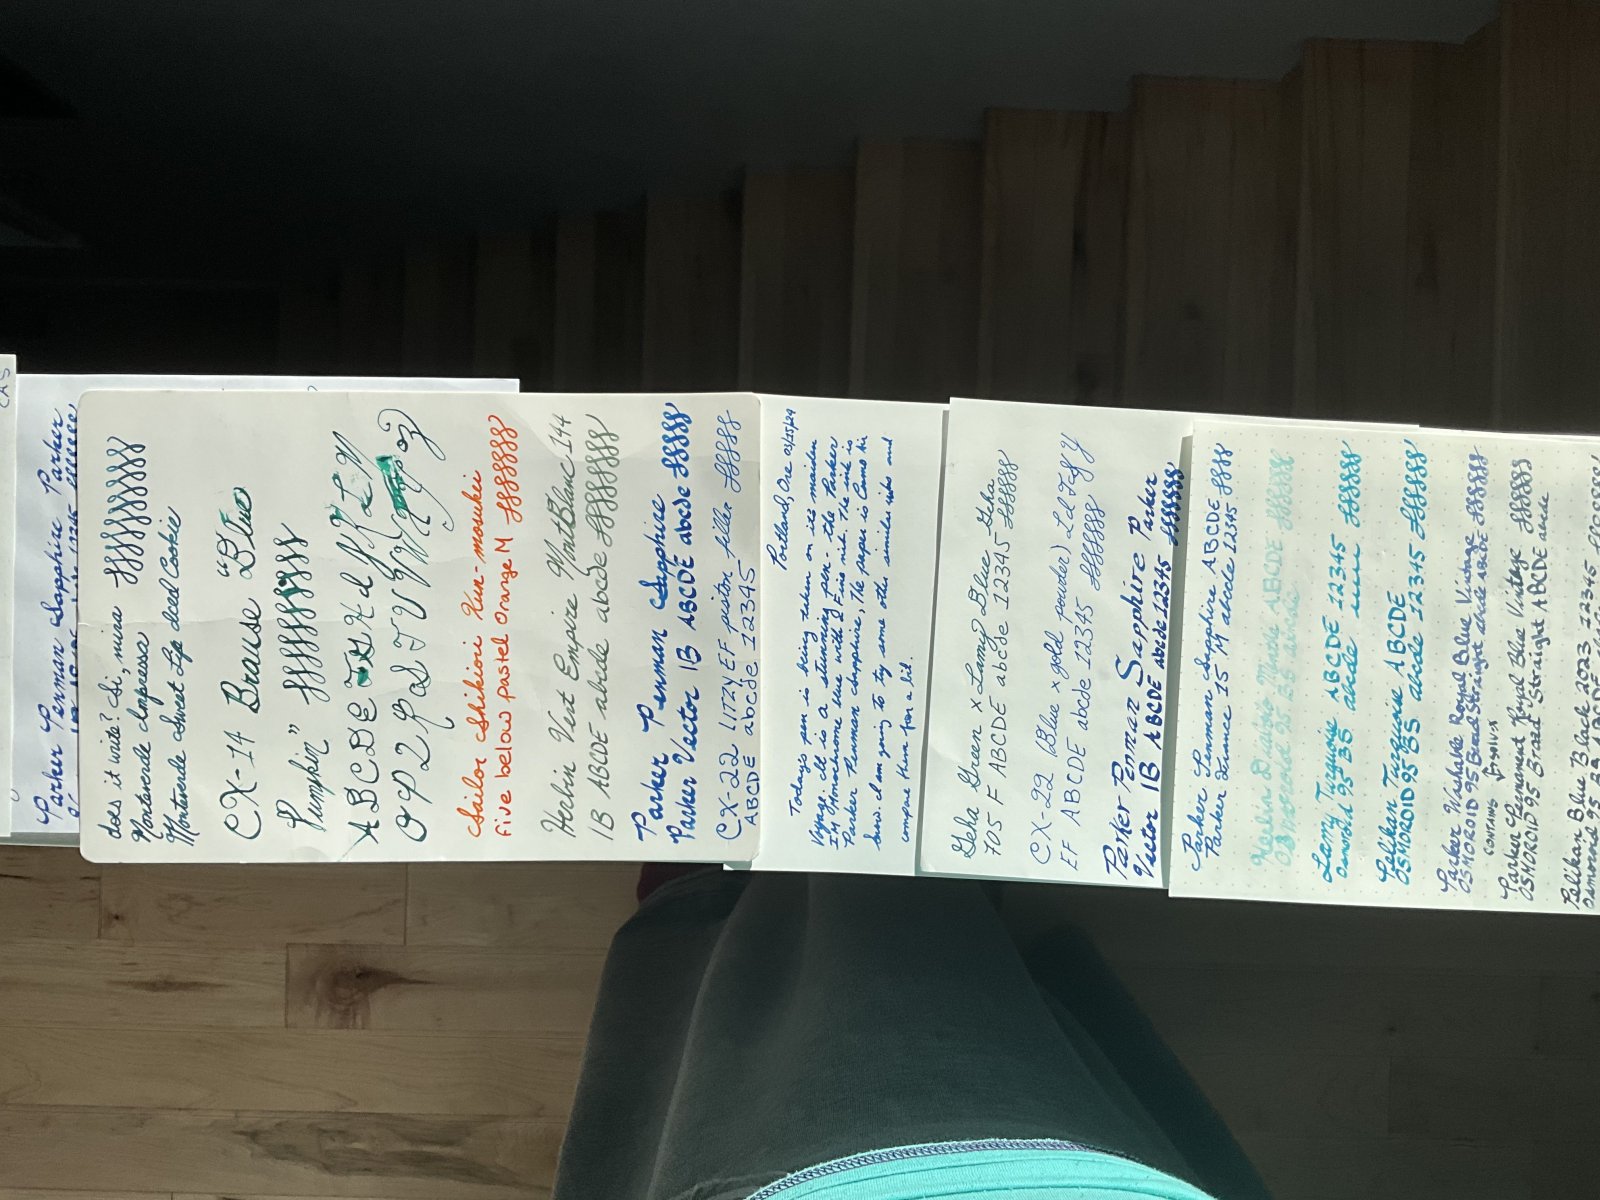 CAS
Parker Penman Sapphire Parker
does it write? Si, mira
Monteverde Impressa
Monteverde Sweet Life Iced Cookie
CX-14 Brause "Blue
Pumpkin"
ABCDE
Sailor Shikiori Kun-mosukei
Five below pastel orange M
Herbin Vert Empire MontBlanc 144
1B ABCDE abcde
Parker Penman Sapphire
Parker Vector 1B ABCDE abcde
CX-22 LITZY EF piston filler
ABCDE abcde 12345
Portland, Ore 03/25/24
Today's pen is being taken on its maiden
voyage. It is a stunning pen - the Parker
IM Monochrome blue with a Fine nib. The ink is
Parker Penman sapphire. The paper is
I am going to try some other similar inks and
compare them for a bit.
Geha Green x Lamy Blue Geha
705 F ABCDE abcde 12345
CX-22 (Blue x gold powder)
EF ABCDE abcde 12345
Parker Penman Sapphire Parker
Vector 1B ABCDE abcde 12345
Parker Penman Sapphire ABCDE
Parker France 15 M abcde 12345
ABCDE
Osmoroid 95 B5 abcde
Lamy Turquoise ABCDE 12345
Osmoroid 95 B5 abcde
Pelikan Turquoise ABCDE
OSMOROID 95 B5 abcde 12345
Parker Washable Royal Blue Vintage
OSMOROID 95 Broad Straight abcde ABCDE
CONTAINS SOLVX
Parker Permanent Royal Blue Vintage
OSMOROID 95 Broad Straight ABCDE abcde
Pelikan Blue Black 2023 12345